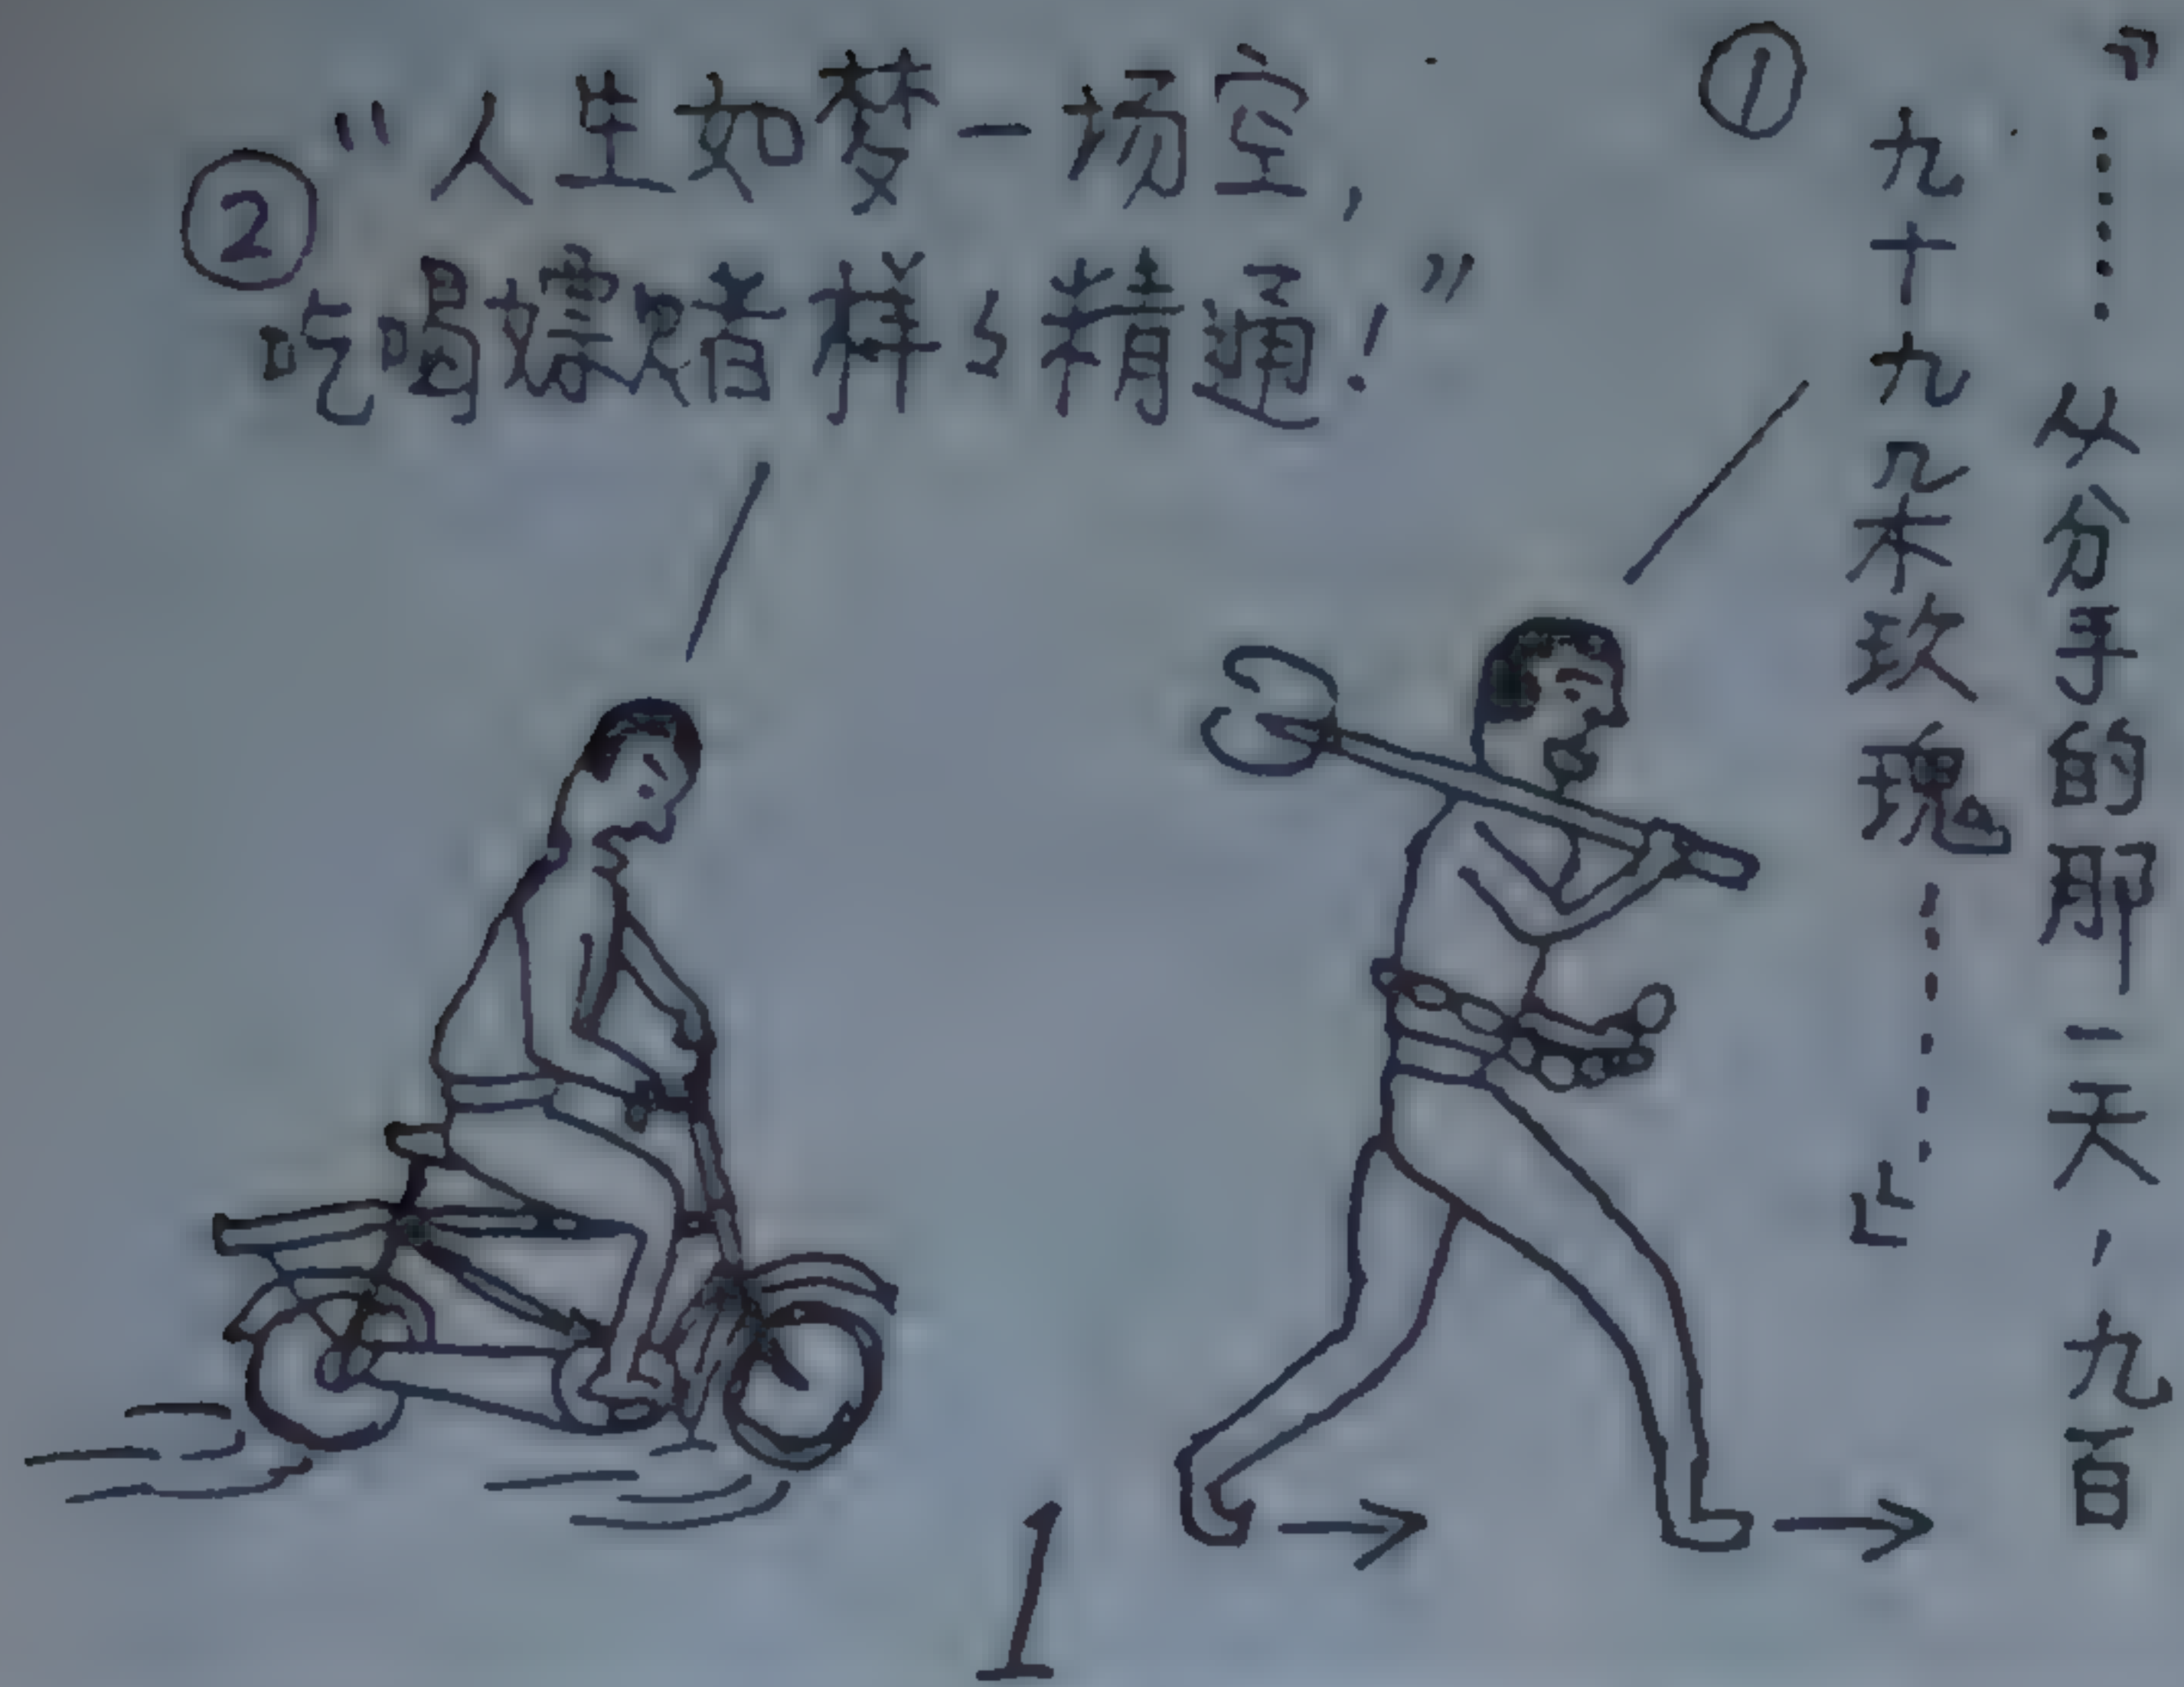 ①
『……从分手的那一天，九百
九十九朵玫瑰……』
②
“人生如梦一场空，
吃喝嫖赌样々精通！”
1